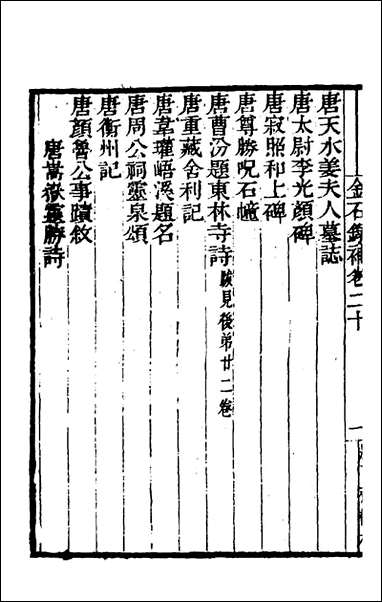 金石錄補卷二十
唐天水姜夫人墓誌
唐太尉李光顏碑
唐寂照和上碑
唐尊勝呪石幢
唐曹汾題東林寺詩 跋見後弟廿二卷
唐重藏舍利記
唐韋瓘浯溪題名
唐周公祠靈泉頌
唐衡州記
唐顏魯公事蹟敘
唐嵩嶽靈勝詩
一